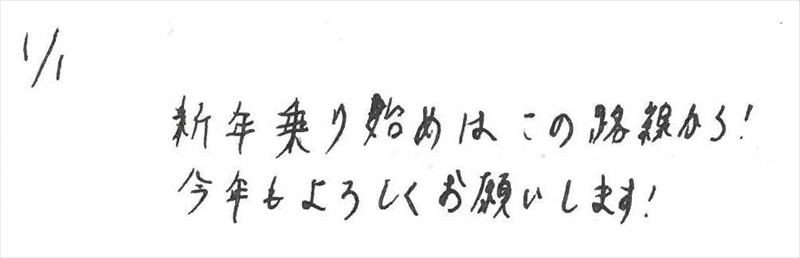 1/1
新年乗り始めはこの路線から!
今年もよろしくお願いします!